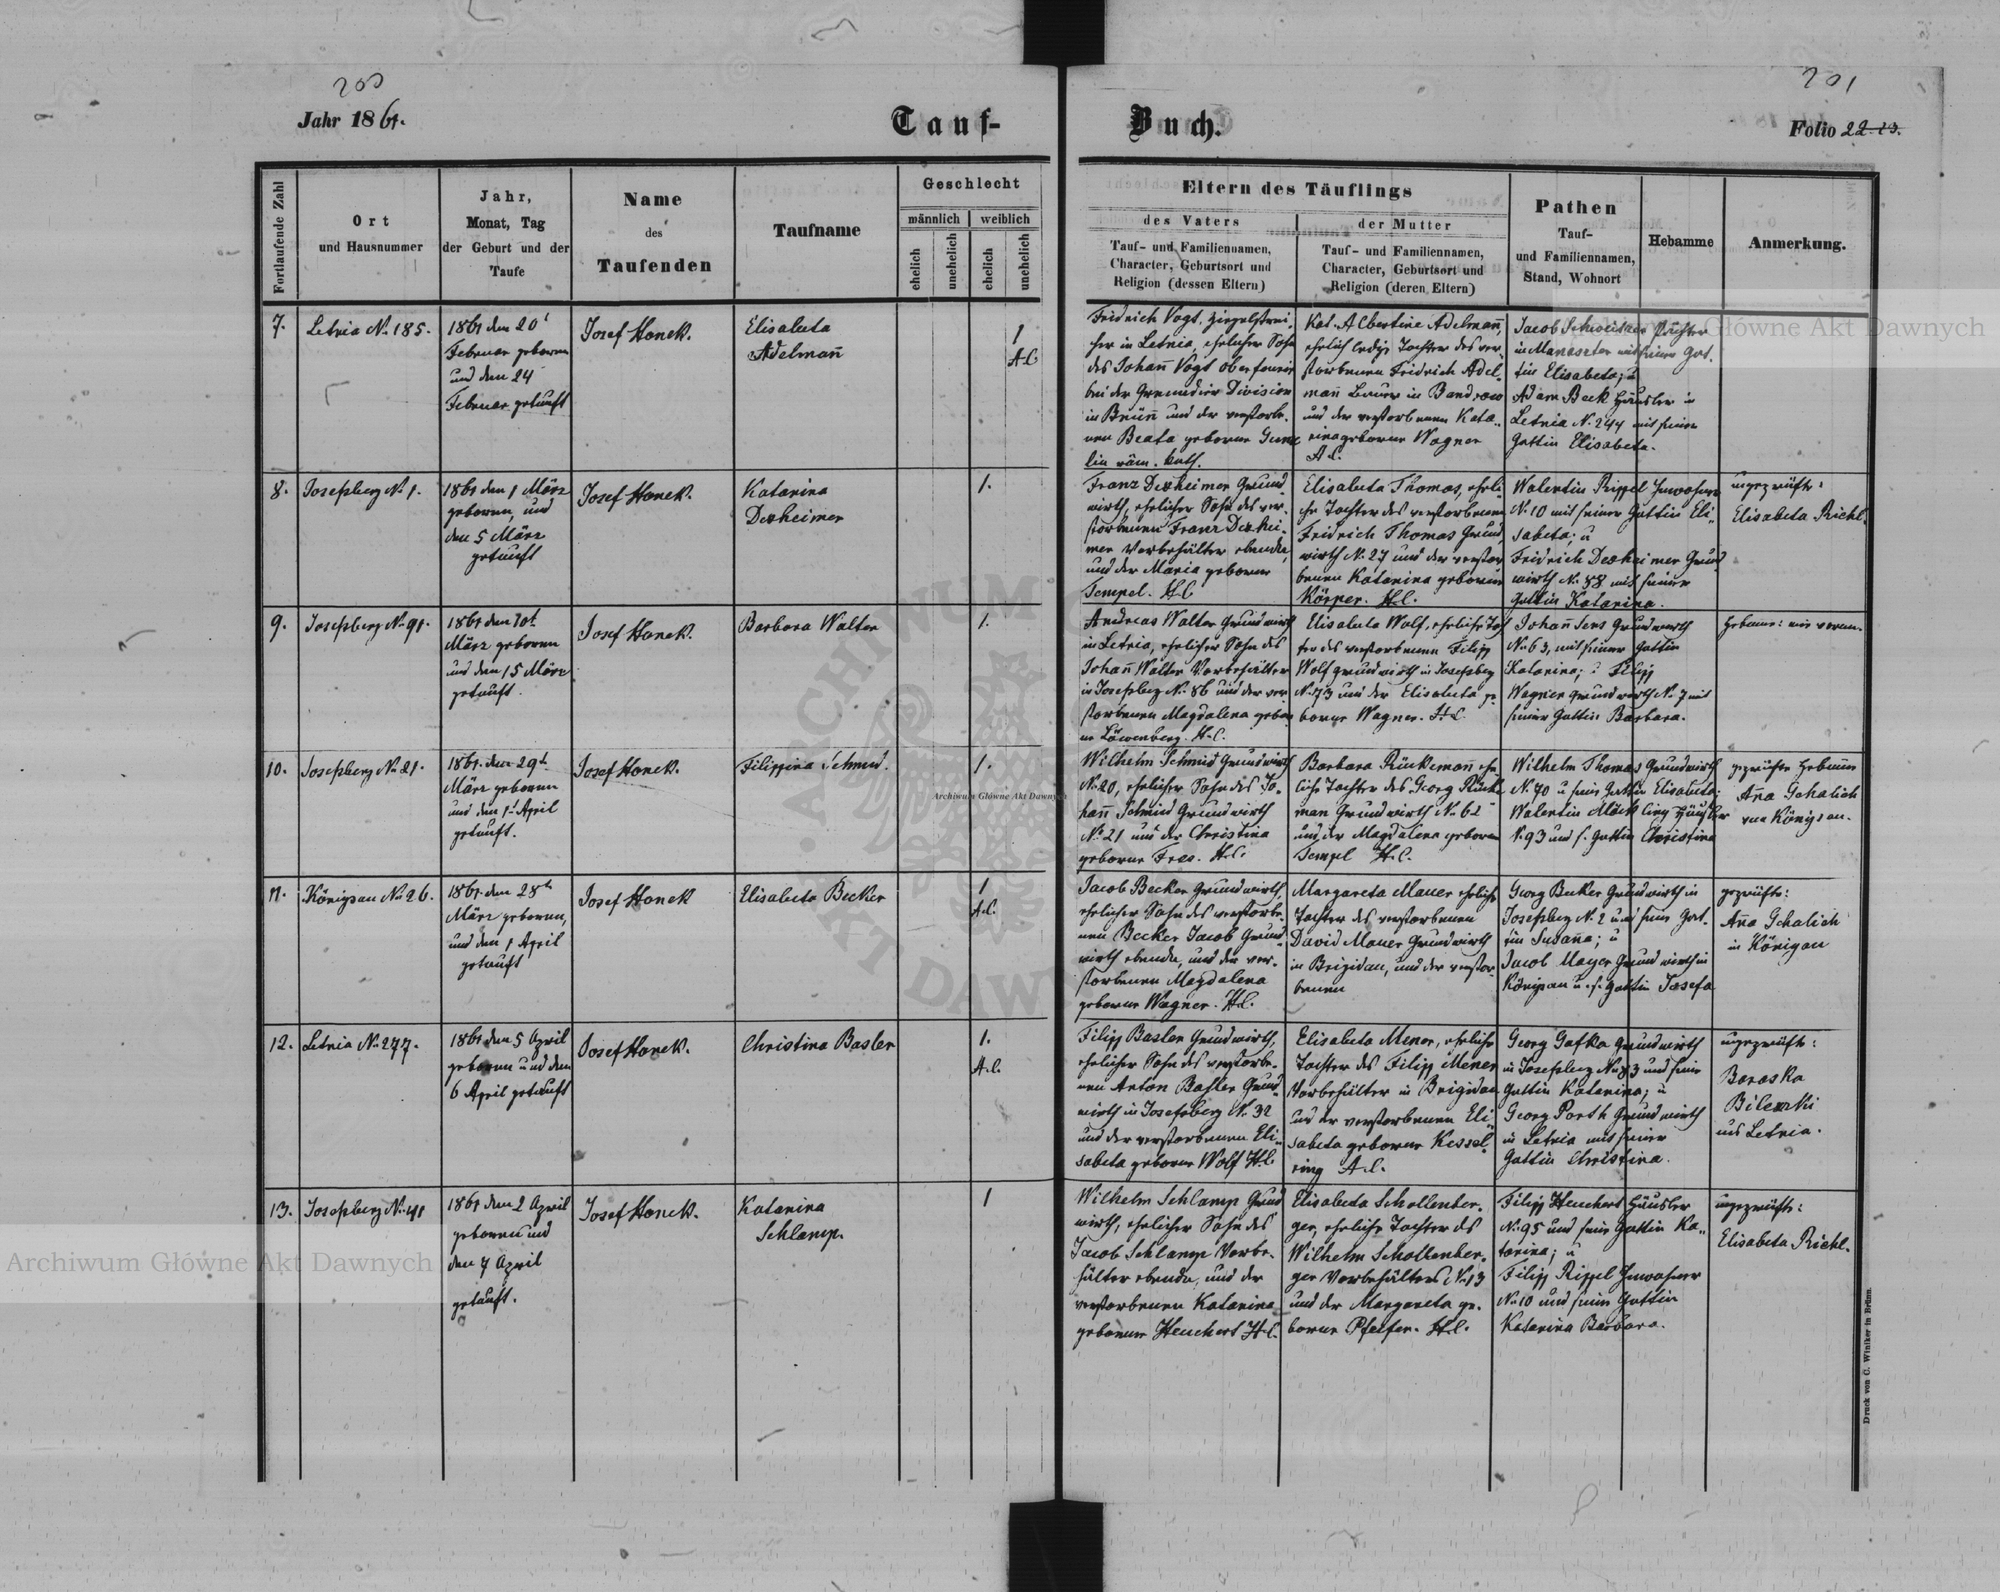 200
201
Jahr 1861.
Tauf-
Buch.
Folio 22
Fortlaufende Zahl
Ort
und Hausnummer
Jahr,
Monat, Tag
der Geburt und der
Taufe
Name
des
Taufenden
Taufname
Geschlecht
männlich
weiblich
ehelich
unehelich
ehelich
unehelich
Eltern des Täuflings
des Vaters
Tauf- und Familiennamen,
Character, Geburtsort und
Religion (dessen Eltern)
der Mutter
Tauf- und Familiennamen,
Character, Geburtsort und
Religion (deren Eltern)
Pathen
Tauf-
und Familiennamen,
Stand, Wohnort
Hebamme
Anmerkung.
7.
Letnia No. 185.
1861 den 20t
Februar geboren
und den 24
Februar getauft
Josef Honek.
Elisabeta
Adelmañ
1
A.C
Fridrich Vogt, Ziegelstrei-
cher in Letnia, ehelicher Sohn
des Johañ Vogt
bei der Grenadier Division
in Brüñ und der verstorbe-
nen Beata geborne
lin röm. kath.
Kat. Albertine Adelmañ,
ehelich ledige Tochter des ver-
storbenen Fridrich Adel-
mañ Bauer in Bandrow
und der verstorbenen Kata-
rina geborne Wagner
A.C.
Jacob Schweitzer Pächter
in Manaster mit seiner Gat-
tin Elisabeta; u
Adam Beck Häusler in
Letnia No. 244 mit seiner
Gattin Elisabeta.
8.
Josefsberg No. 1.
1861 den 1 März
geboren, und
den 5 März
getauft
Josef Honek.
Katarina
Dexheimer
1.
Franz Dexheimer Grund-
wirth, ehelicher Sohn des ver-
storbenen Franz Dexhei-
mer Vorbehälter ebenda,
und der Maria geborne
Tempel. H.C
Elisabeta Thomas, eheli-
che Tochter des verstorbenen
Fridrich Thomas Grund-
wirth No. 27 und der verstor-
benen Katarina geborene
Körper. H.C.
Walentin Rippel Inwohner
No. 10 mit seiner Gattin Eli-
sabeta; u
Fridrich Dexheimer Grund-
wirth No. 58 mit seiner
Gattin Katarina.
ungeprüfte:
Elisabeta Richl.
9.
Josefsberg No. 91.
1861 den 10t
März geboren
und den 15 März
getauft.
Josef Honek.
Barbara Walter
1.
Andreas Walter Grundwirth
in Letnia, ehelicher Sohn des
Johañ Walter Vorbehälter
in Josefsberg No. 86 und der ver-
storbenen Magdalena gebor-
ne Löwenberg. H.C.
Elisabeta Wolf, eheliche Toch-
ter des verstorbenen Filipp
Wolf Grundwirth in Josefsberg
No. 73 und der Elisabeta ge-
borne Wagner. H.C.
Johañ Sers Grundwirth
No. 63, mit seiner Gattin
Katarina; u Filipp
Wagner Grundwirth No. 7 mit
seiner Gattin Barbara.
Hebame: wie voran.
10.
Josefsberg No. 21.
1861 den 29t
März geboren
und den 1t April
getauft.
Josef Honek.
Filippina Schmid.
1.
Wilhelm Schmid Grundwirth
No. 20, ehelicher Sohn des Jo-
hañ Schmid Grundwirth
No. 21 und der Christina
geborne Fres. H.C.
Barbara Rückemañ ehe-
liche Tochter des Georg Rücke
man Grundwirth No. 62
und der Magdalena geboren
Tempel H.C.
Wilhelm Thomas Grundwirth
No. 70 u seine Gattin Elisabeta;
Walentin Möckling Häusler
No. 93 und s. Gattin Christina
geprüfte Hebame
Aña Gehalich
von Königsau.
11.
Königsau No. 26.
1861 den 28t
März geboren,
und den 1 April
getauft
Josef Honek
Elisabeta Becker
1
A.C.
Jacob Becker Grundwirth
ehelicher Sohn des verstorbe-
nen Becker Jacob Grund-
wirth ebenda, und der ver-
storbenen Magdalena
geborne Wagner. H.C.
Margareta Mauer eheliche
Tochter des verstorbenen
David Mauer Grundwirth
in Brigidau, und der verstor-
benen
Georg Becker Grundwirth in
Josefsberg No. 2 und seine Gat-
tin Susaña; u
Jacob Mayer Grundwirth in
Königsau u. s. Gattin Josefa
geprüfte:
Aña Gehalich
in Königsau
12.
Letnia No. 277.
1861 den 5 April
geboren und den
6 April getauft
Josef Honek.
Christina Basler
1.
A.C.
Filipp Basler Grundwirth,
ehelicher Sohn des verstorbe-
nen Anton Basler Grund-
wirth in Josefsberg No. 32
und der verstorbenen Eli-
sabeta geborne Wolf H.C
Elisabeta Mener, eheliche
Tochter des Filipp Mener
Vorbehälter in Brigidau
und der verstorbenen Eli-
sabeta geborne Kessel-
ring A.C.
Georg Gafka Grundwirth
in Josefsberg No. 83 und seine
Gattin Katarina; u
Georg Porth Grundwirth
in Letnia mit seiner
Gattin Christina.
ungeprüfte:
Baraska
Bilewski
aus Letnia.
13.
Josefsberg No. 41
1861 den 2 April
geboren und
den 7 April
getauft.
Josef Honek.
Katarina
Schlamp.
1
Wilhelm Schlamp Grund
wirth, ehelicher Sohn des
Jacob Schlamp Vorbe-
hälter ebenda, und der
verstorbenen Katarina
geborene Heuchert H.C.
Elisabeta Schollenber-
ger, eheliche Tochter des
Wilhelm Schollenber-
ger Vorbehälters No. 13
und der Margareta ge-
borne Pfeifer. H.C.
Filipp Heuchert Häusler
No. 95 und seine Gattin Ka-
tarina; u
Filipp Rippel Inwohner
No. 10 und seine Gattin
Katarina Barbara.
ungeprüfte:
Elisabeta Richl.
Druck von C. Winiker in Brünn.
Archiwum Główne Akt Dawnych
Archiwum Główne Akt Dawnych
Archiwum Główne Akt Dawnych
ARCHIWUM
AKT DAWN